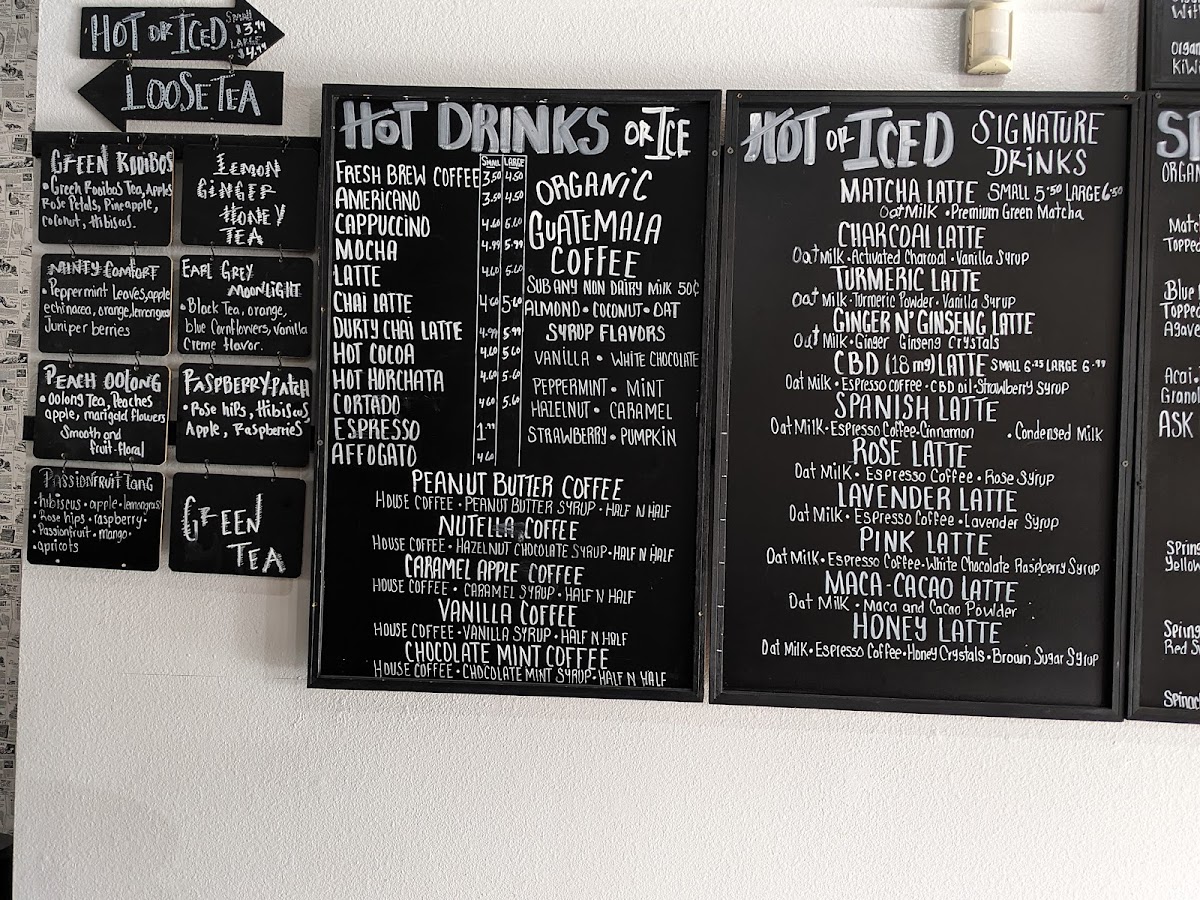 HOT OR ICED
SMALL $3.99
LARGE $4.99
LOOSE TEA
GREEN ROOIBOS
• Green Rooibos Tea, Apples
Rose Petals, Pineapple,
coconut, Hibiscus.
LEMON
GINGER
HONEY
TEA
MINTY COMFORT
• Peppermint Leaves, apple
echinacea, orange, lemongrass
Juniper berries
EARL GREY
MOONLIGHT
• Black Tea, orange,
blue Cornflowers, vanilla
Creme flavor.
PEACH OOLONG
• Oolong Tea, Peaches
apple, marigold flowers
Smooth and
fruit-floral
RASPBERRY-PATCH
• Rose hips, Hibiscus,
Apple, Raspberries
PASSIONFRUIT TANG
• hibiscus • apple • lemongrass
• Rose hips • raspberry •
• Passionfruit • mango •
• apricots
GREEN
TEA
HOT DRINKS OR ICE
SMALL LARGE
FRESH BREW COFFEE 3.50 4.50
AMERICANO 3.50 4.50
CAPPUCCINO 4.60 5.60
MOCHA 4.99 5.99
LATTE 4.60 5.60
CHAI LATTE 4.60 5.60
DURTY CHAI LATTE 4.99 5.99
HOT COCOA 4.60 5.60
HOT HORCHATA 4.60 5.60
CORTADO 4.60 5.60
ESPRESSO 1.99
AFFOGATO 4.60
ORGANIC
GUATEMALA
COFFEE
SUB ANY NON DAIRY MILK 50¢
ALMOND • COCONUT • OAT
SYRUP FLAVORS
VANILLA • WHITE CHOCOLATE
PEPPERMINT • MINT
HAZELNUT • CARAMEL
STRAWBERRY • PUMPKIN
PEANUT BUTTER COFFEE
HOUSE COFFEE • PEANUT BUTTER SYRUP • HALF N HALF
NUTELLA COFFEE
HOUSE COFFEE • HAZELNUT CHOCOLATE SYRUP • HALF N HALF
CARAMEL APPLE COFFEE
HOUSE COFFEE • CARAMEL SYRUP • HALF N HALF
VANILLA COFFEE
HOUSE COFFEE • VANILLA SYRUP • HALF N HALF
CHOCOLATE MINT COFFEE
HOUSE COFFEE • CHOCOLATE MINT SYRUP • HALF N HALF
HOT OR ICED SIGNATURE
DRINKS
MATCHA LATTE SMALL 5.50 LARGE 6.50
Oat Milk • Premium Green Matcha
CHARCOAL LATTE
Oat Milk • Activated Charcoal • Vanilla Syrup
TURMERIC LATTE
Oat Milk • Turmeric Powder • Vanilla Syrup
GINGER N' GINSENG LATTE
Oat Milk • Ginger Ginseng Crystals
CBD (18 mg) LATTE SMALL 6.25 LARGE 6.99
Oat Milk • Espresso coffee • CBD oil • Strawberry Syrup
SPANISH LATTE
Oat Milk • Espresso Coffee • Cinnamon • Condensed Milk
ROSE LATTE
Oat Milk • Espresso Coffee • Rose Syrup
LAVENDER LATTE
Oat Milk • Espresso Coffee • Lavender Syrup
PINK LATTE
Oat Milk • Espresso Coffee • White Chocolate Raspberry Syrup
MACA-CACAO LATTE
Oat Milk • Maca and Cacao Powder
HONEY LATTE
Oat Milk • Espresso Coffee • Honey Crystals • Brown Sugar Syrup
With
Organ
Kiwi
S
ORGAN
Matc
Topped
Blue
Topped
Agave
Acai
Granol
ASK
Spring
Yellow
Spring
Red S
Spinac